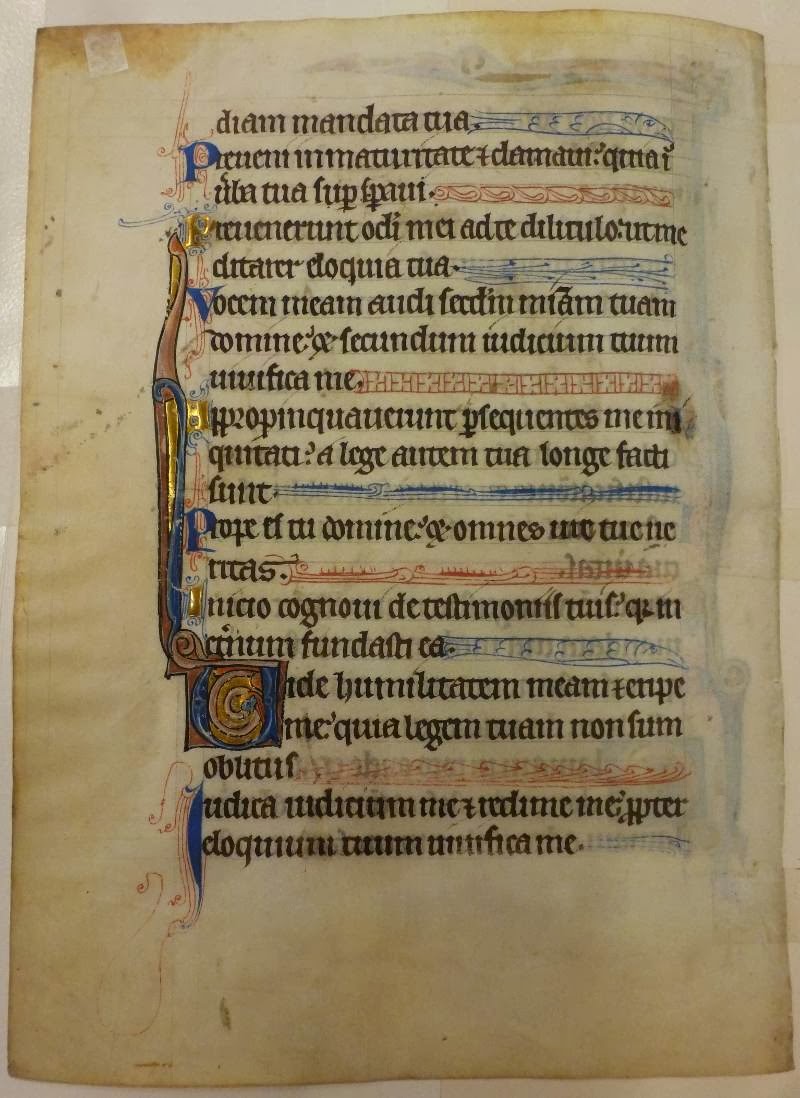 diam mandata tua.
Preueni in maturitate ⁊ clamaui: quia ī
ūba tua suꝑ sꝑaui.
Preuenerunt oc̄li mei ad te diliculo: ut me
ditarer eloquia tua.
Vocem meam audi sec̄dm mīam tuam
domine: & secundum iudicium tuum
uiuifica me.
Appropinquauerunt ꝑsequentes me ini
quitati: a lege autem tua longe facti
sunt.
Prope es tu domine: & omnes uie tue ue
ritas.
Inicio cognoui de testimoniis tuis: quia in
et̄num fundasti ea.
Uide humilitatem meam ⁊ eripe
me: quia legem tuam non sum
oblitus
Iudica iudicium meū ⁊ redime me: ꝓpter
eloquium tuum uiuifica me.